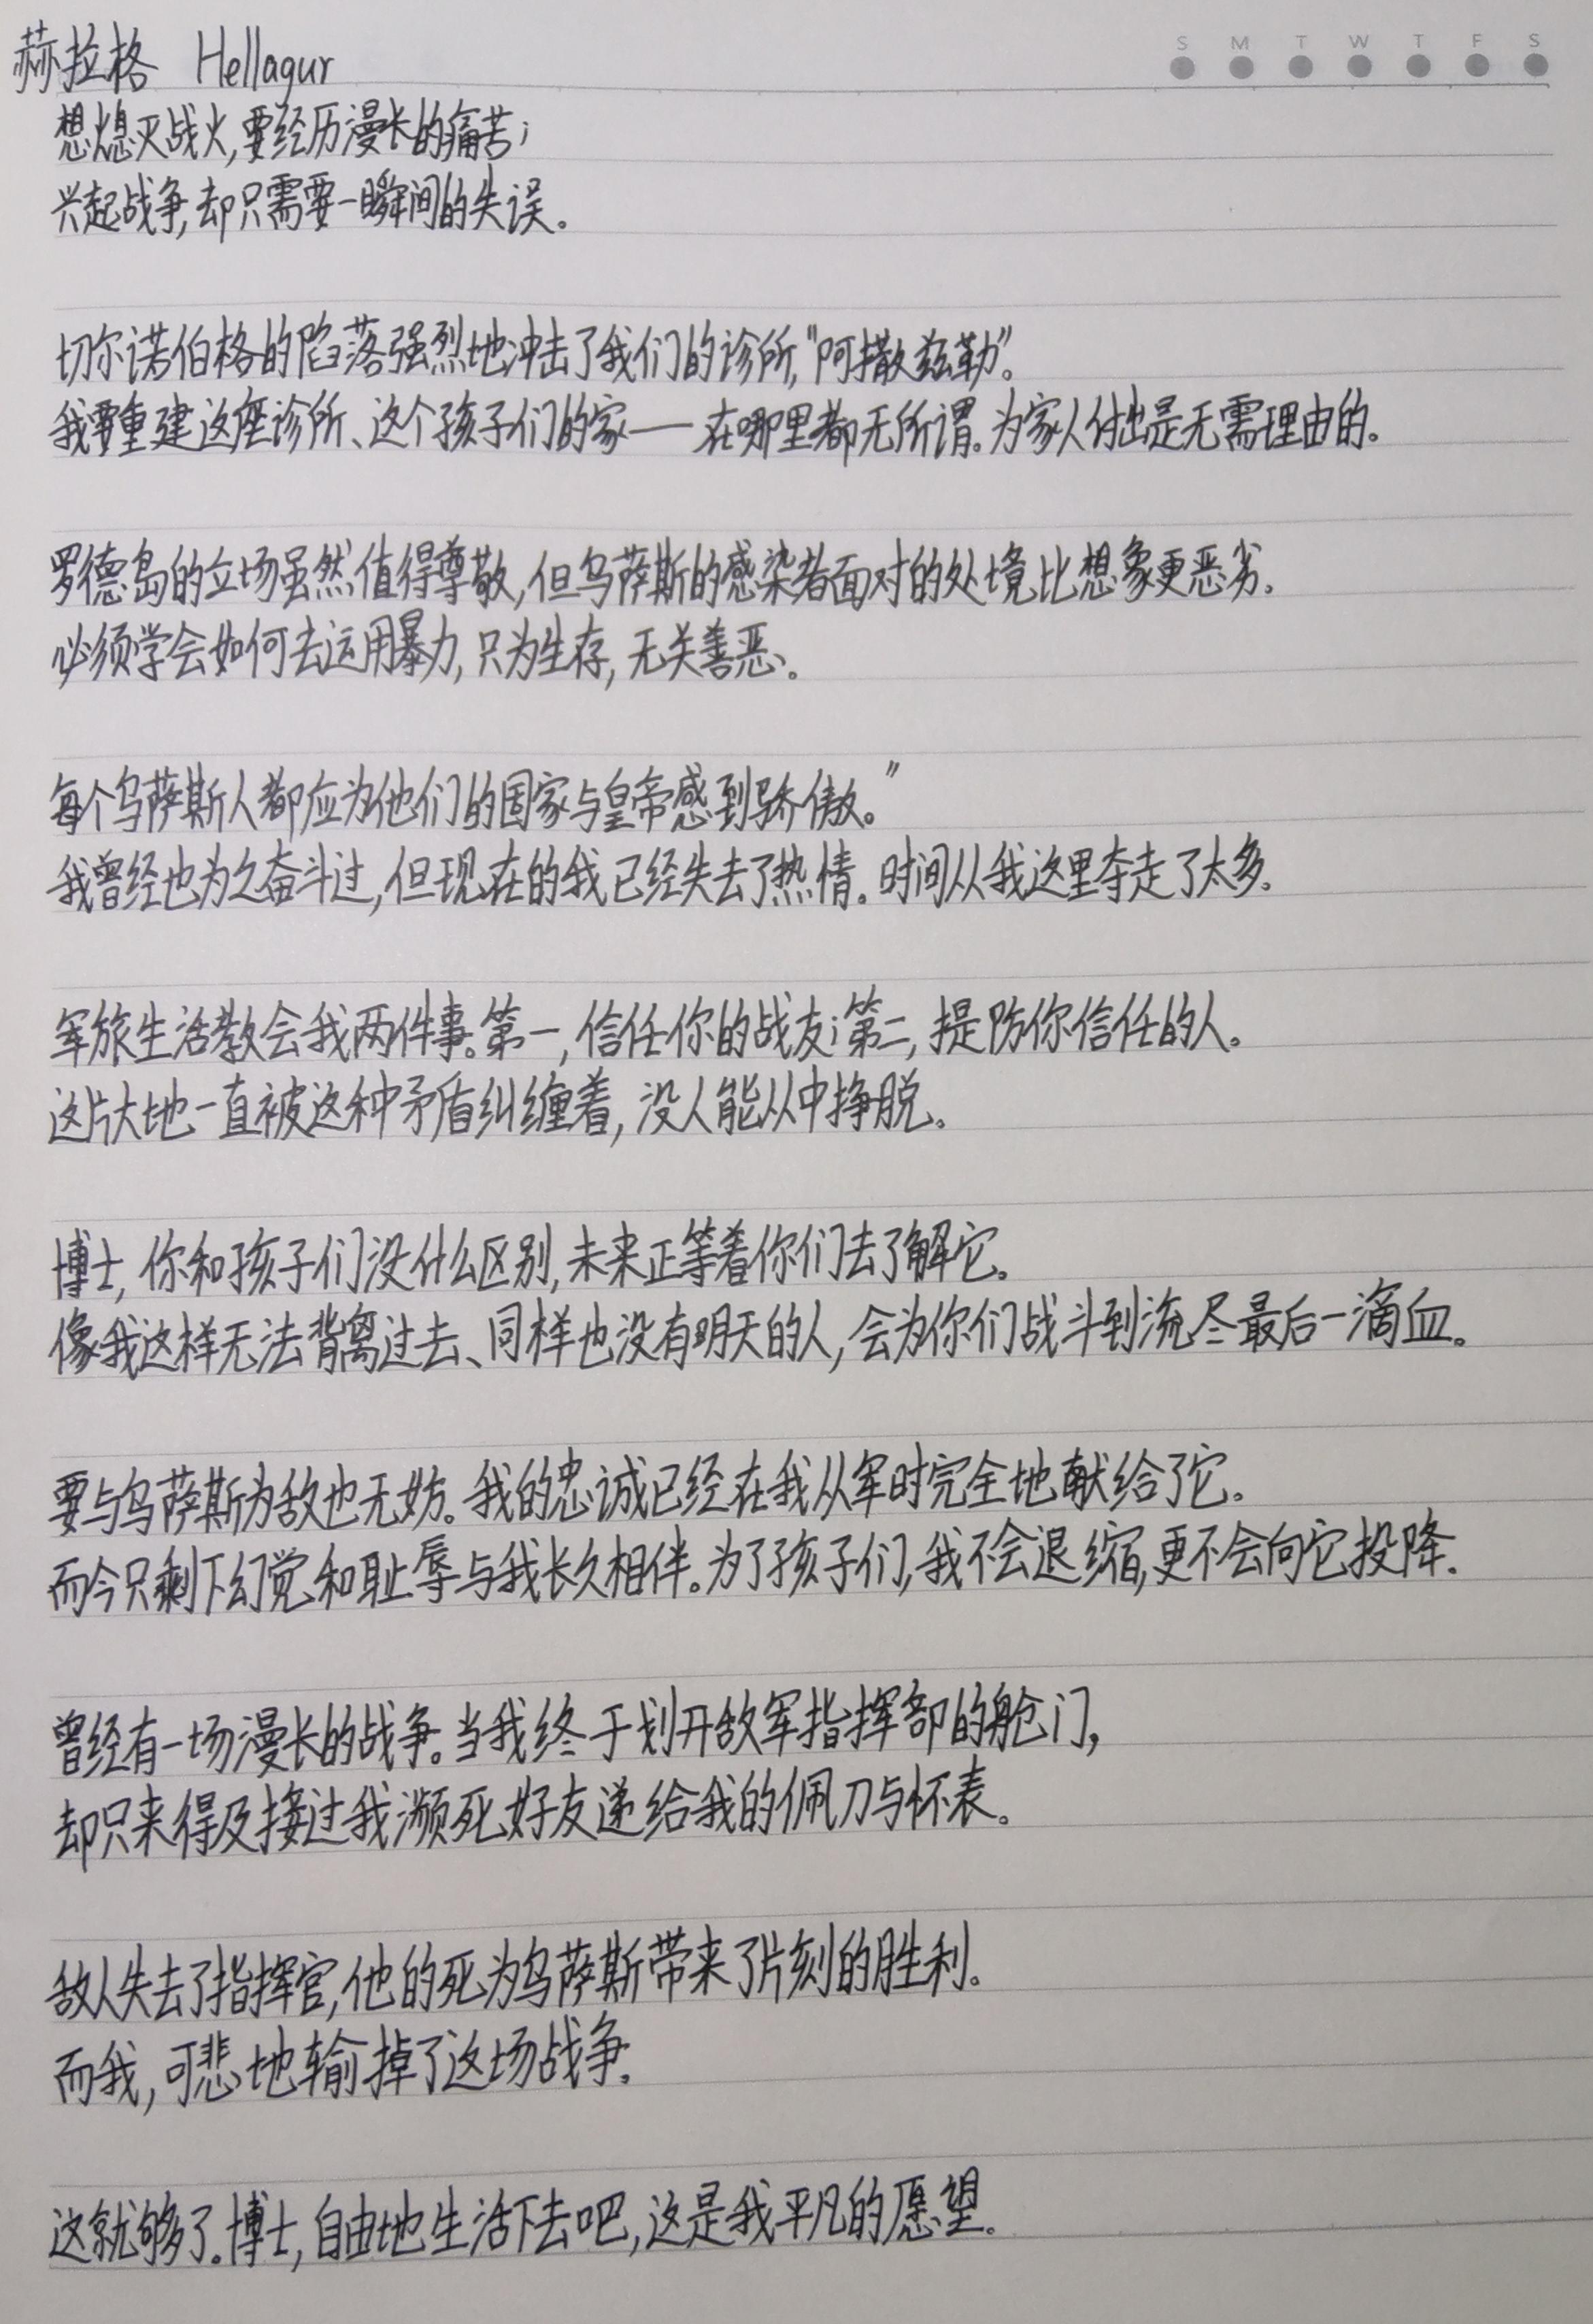 赫拉格 Hellagur
S M T W T F S
想熄灭战火,要经历漫长的痛苦;
兴起战争,却只需要一瞬间的失误。
切尔诺伯格的陷落强烈地冲击了我们的诊所,"阿撒兹勒"。
我要重建这座诊所、这个孩子们的家——在哪里都无所谓。为家人付出是无需理由的。
罗德岛的立场虽然值得尊敬,但乌萨斯的感染者面对的处境比想象更恶劣.
必须学会如何去运用暴力,只为生存,无关善恶。
每个乌萨斯人都应为他们的国家与皇帝感到骄傲。"
我曾经也为之奋斗过,但现在的我已经失去了热情。时间从我这里夺走了太多.
军旅生活教会我两件事。第一,信任你的战友;第二,提防你信任的人。
这片大地一直被这种矛盾纠缠着,没人能从中挣脱。
博士,你和孩子们没什么区别,未来正等着你们去了解它。
像我这样无法背离过去、同样也没有明天的人,会为你们战斗到流尽最后一滴血。
要与乌萨斯为敌也无妨。我的忠诚已经在我从军时完全地献给了它。
而今只剩下幻觉和耻辱与我长久相伴。为了孩子们,我不会退缩,更不会向它投降.
曾经有一场漫长的战争。当我终于划开敌军指挥部的舱门,
却只来得及接过我濒死好友递给我的佩刀与怀表。
敌人失去了指挥官,他的死为乌萨斯带来了片刻的胜利。
而我,可悲地输掉了这场战争.
这就够了.博士,自由地生活下去吧,这是我平凡的愿望。